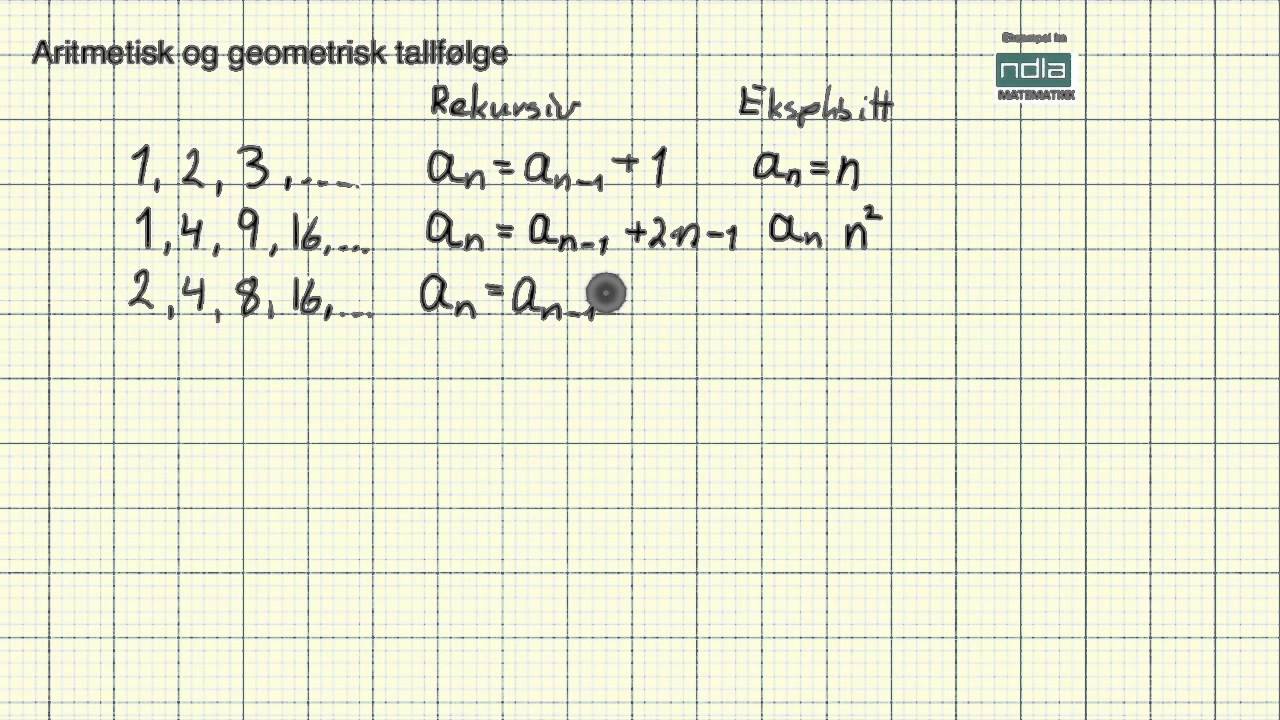 Aritmetisk og geometrisk tallfølge
Eksempel fra
ndla
MATEMATIKK
Rekursiv Eksplisitt
1, 2, 3, ..... aₙ = aₙ₋₁ + 1 aₙ = n
1, 4, 9, 16, ... aₙ = aₙ₋₁ + 2n - 1 aₙ n²
2, 4, 8, 16, .... aₙ = aₙ₋₁